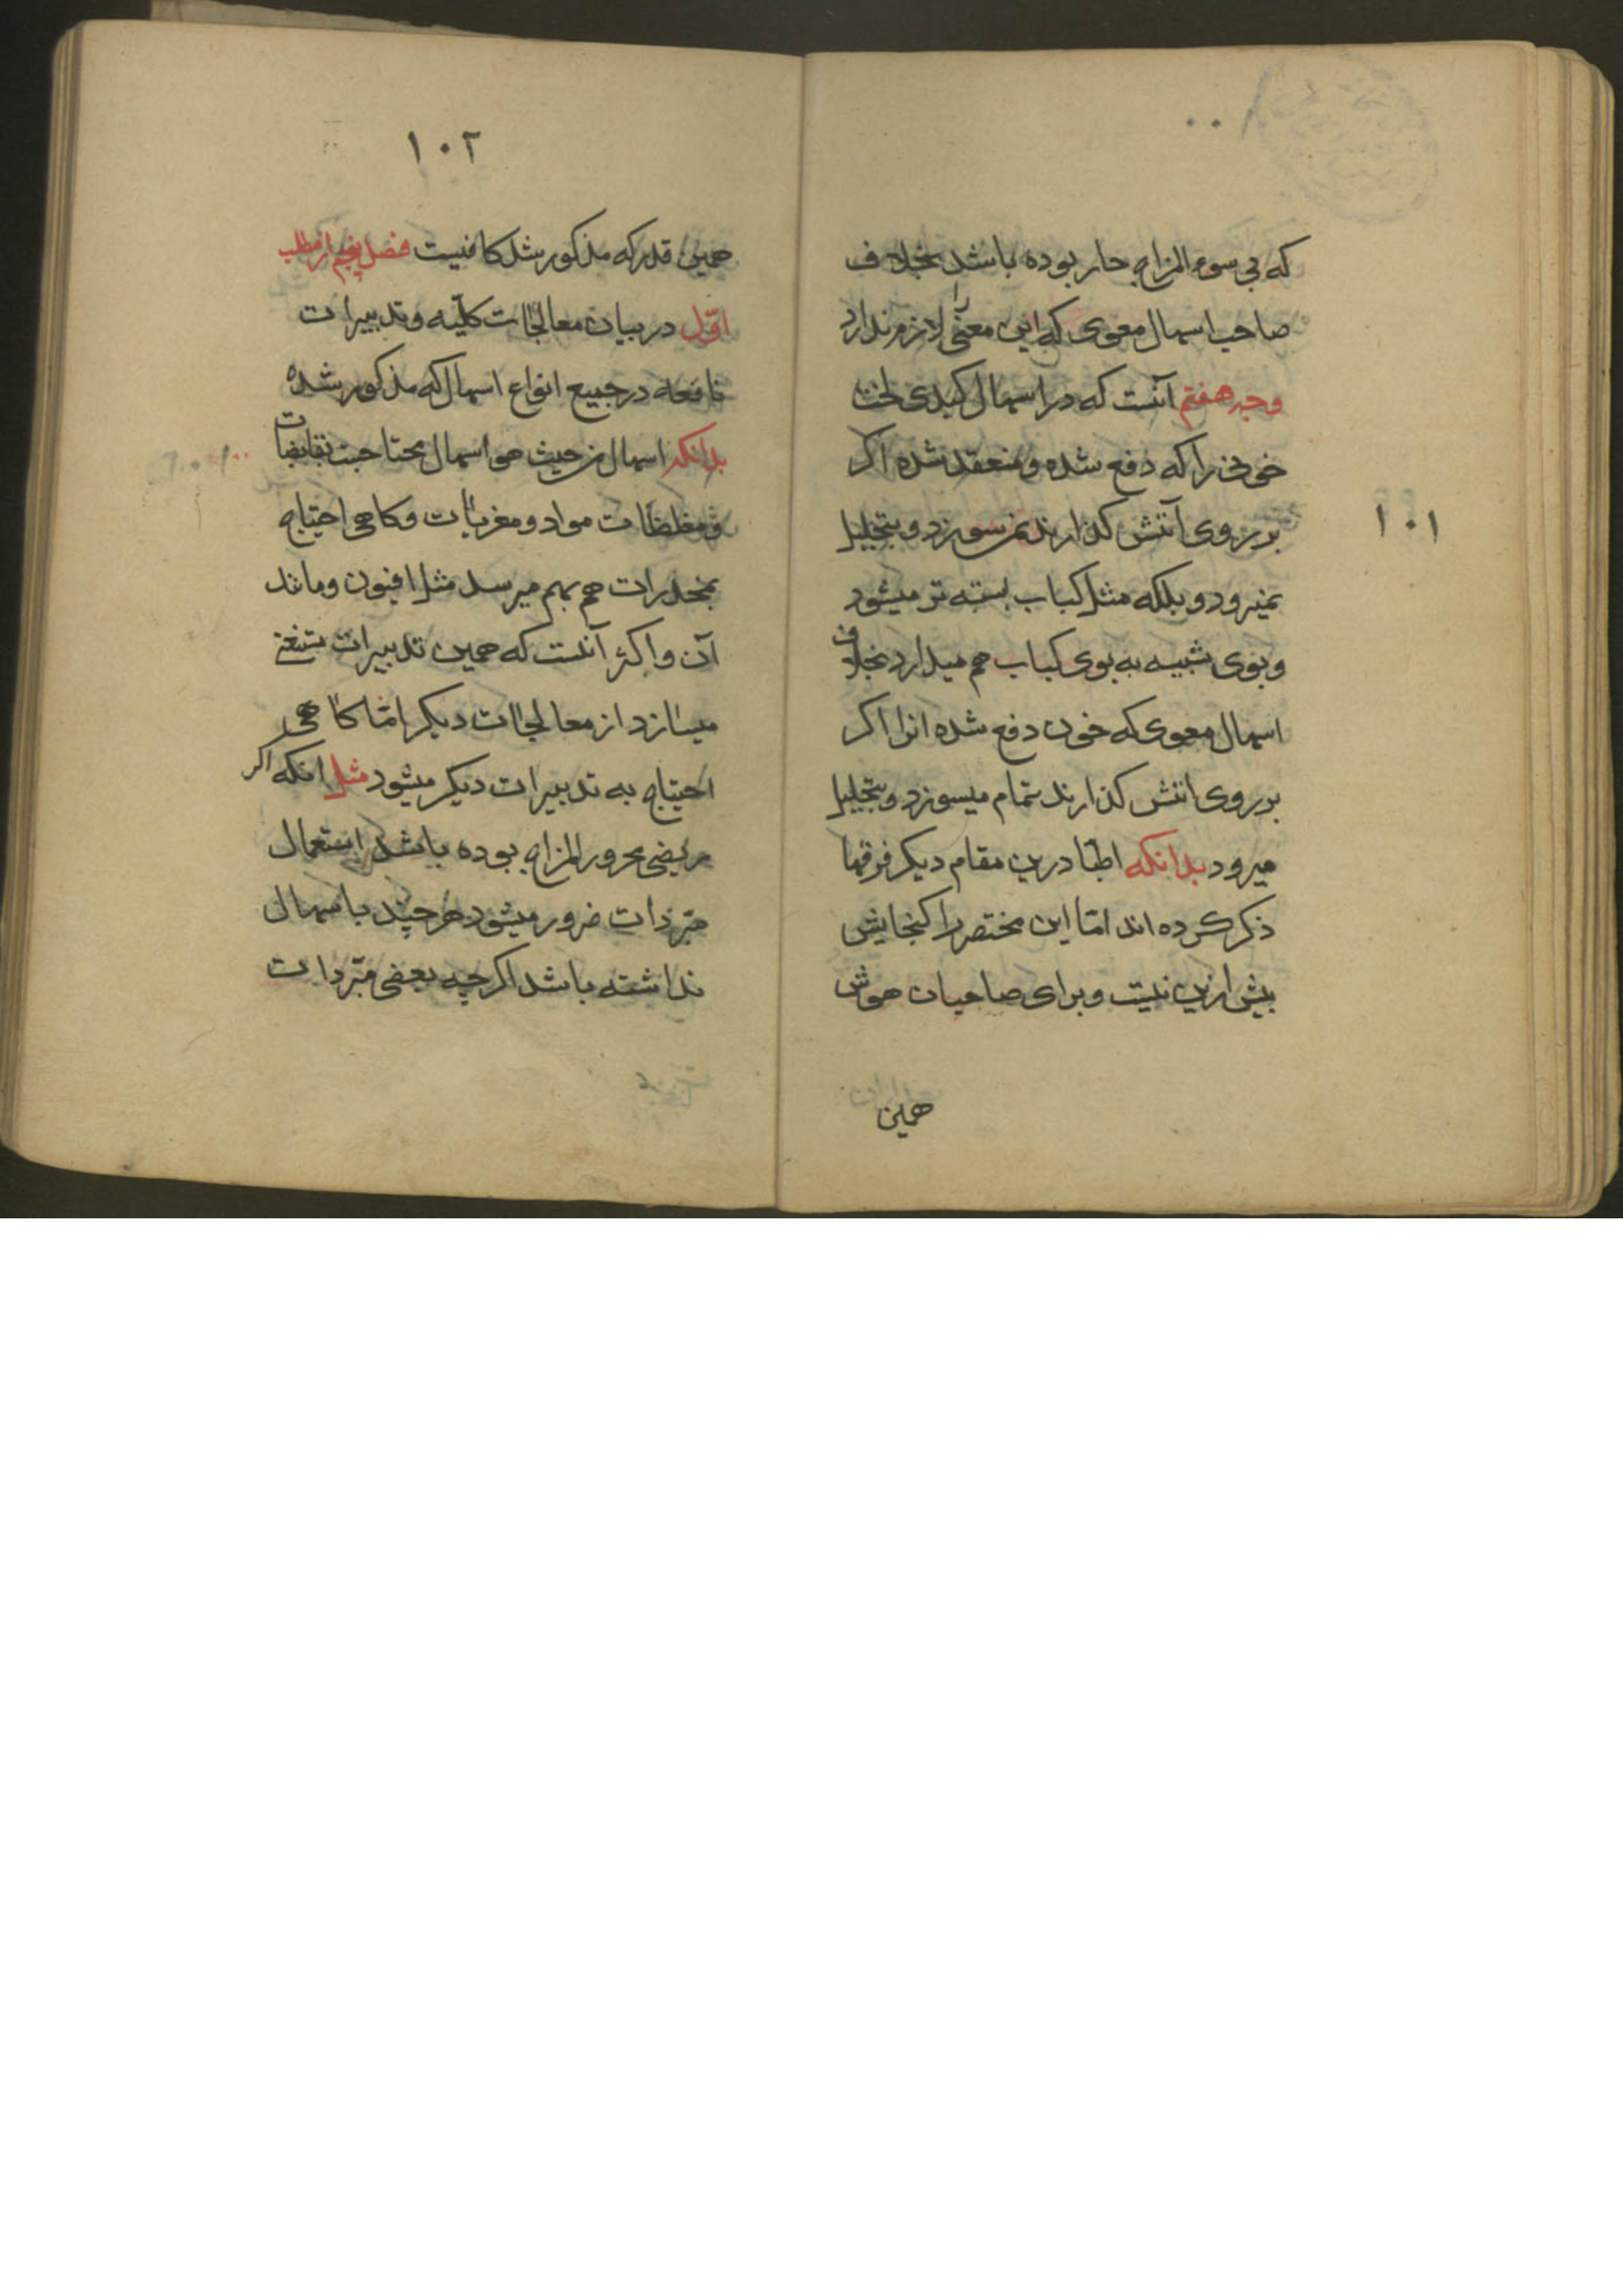 ۱۰۱
که بی سوء المزاج حار بوده باشد بخلاف
صاحب اسهال معوی که این معنی را لازم ندارد
وجه هفتم آنست که در اسهال کبدی لخت
خونی را که دفع شده و منعقد شده اکر
بر روی آتش کذارند نمیسوزد و بتحلیل
نمیرود و بلکه مثل کباب بسته تر میشود
و بوی شبیه به بوی کباب هم میدارد بخلاف
اسهال معوی که خون دفع شده انرا اکر
بر روی اتش کذارند تمام میسوزد و بتحلیل
میرود بدانکه اطبّا درین مقام دیکر فرقها
ذکر کرده اند امّا این مختصر را کنجایش
بیش ازین نیست و برای صاحبان هوش
همین
۱۰۲
همین قدر که مذکور شد کافیست فصل پنجم از مطلب
اوّل در بیان معالجات کلّیه و تدبیرات
نافعه در جمیع انواع اسهال که مذکور شده
بدانکه اسهال من حیث هی اسهال محتاجست بقابضات
و مغلظات مواد و مغریات و کاهی احتیاج
بمخدرات هم بهم میرسد مثل افیون و مانند
آن و اکثر آنست که همین تدبیرات مستغنی
میسازد از معالجات دیکر امّا کاهی
احتیاج به تدبیرات دیکر میشود مثل انکه اکر
مریض محرور المزاج بوده باشد استعمال
مبرّدات ضرور میشود هرچند با اسهال
نداشته باشد اکرچه بعضی مبرّدات